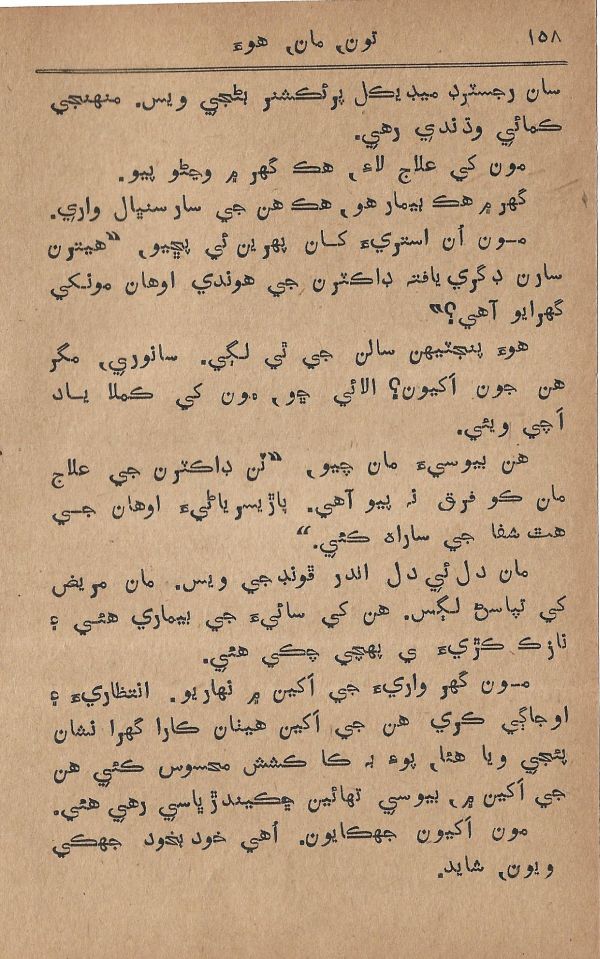 ١٥٨ تون, مان, هوءَ
سان رجسٽرڊ ميڊيڪل پرئڪٽشنر بڻجي ويس. منهنجي
ڪمائي وڌندي رهي.
مون کي علاج لاءِ, هڪ گهر ۾ وڃڻو پيو.
گهر ۾ هڪ بيمار هو, هڪ هن جي سار سنڀال واري.
مـون اُن استريءَ کـان پهرين ئي پڇيو, “هيترن
سارن ڊگري يافتہ ڊاڪٽرن جي هوندي اوهان مونـکي
گهرايو آهي؟”
هوءَ پنجٽيهن سالن جي ٿي لڳي. سانوري, مگر
هن جون اکيون؟ الائي ڇو, مون کي ڪملا يـاد
اَچي ويئي.
هن بيوسيءَ مان چيو, “ٽن ڊاڪٽرن جي علاج
مان ڪو فرق نہ پيو آهي. پاڙيسرياڻيءَ اوهان جـي
هٿ شفا جي ساراه ڪئي.“
مان دل ئي دل اندر ڦونڊجي ويس. مان مريض
کي تپاسڻ لڳس. هن کي سائيءَ جي بيماري هئـي ۽
نازڪ ڪڙيءَ ي پهچي چڪي هئي.
مـون گهر واريءَ جي اَکين ۾ نهاريو. انتظاريءَ ۽
اوجاڳي ڪري هن جي اَکين هيٺان ڪارا گهرا نشان
پئجي ويا هئا, پوءِ بہ ڪا ڪشش محسوس ڪئي هن
جي اَکين ۾, بيوسي تهائين ڇڪيندڙ ڀاسي رهي هئي.
مون اَکيون جهڪايون. اُهي خود بخود جهڪي
ويون, شايد.